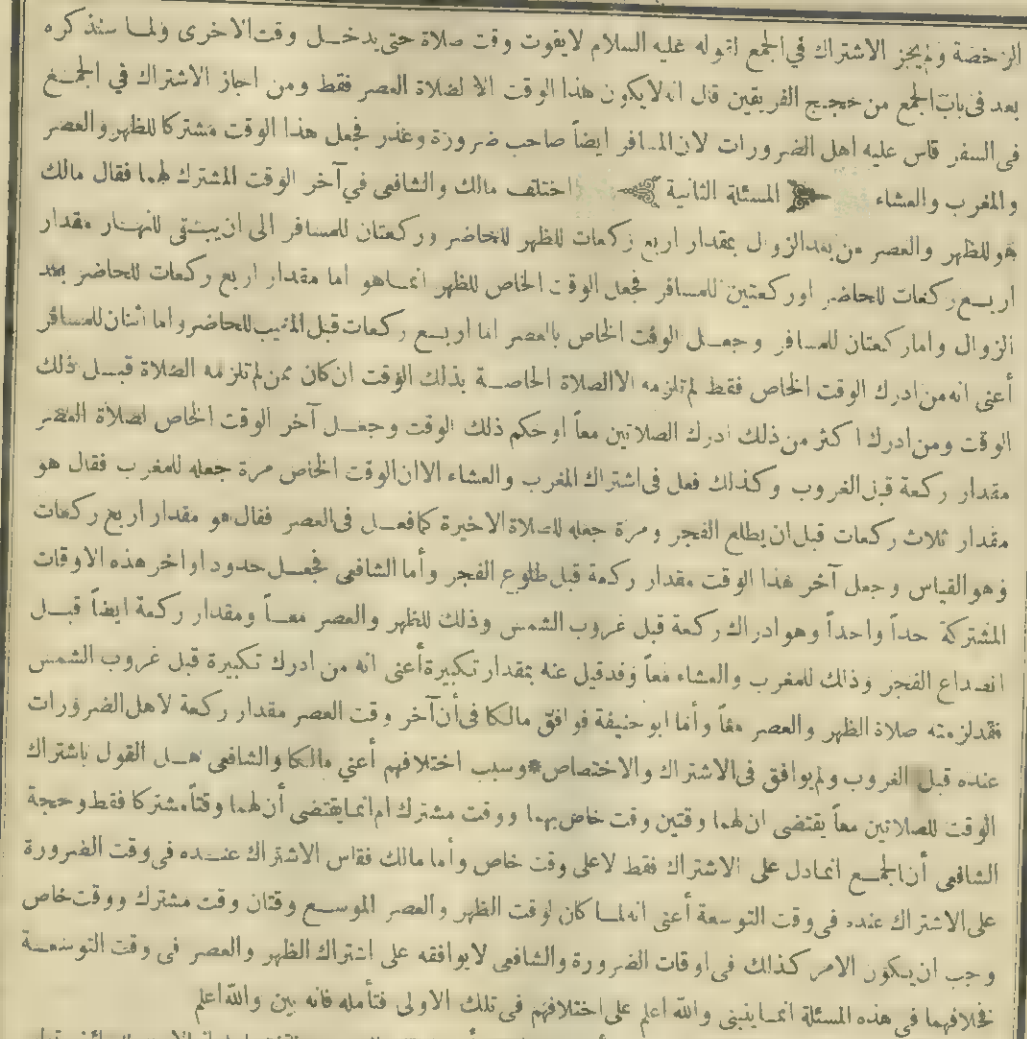 الرخصة ولم يجز الاشتراك في الجمع لقوله عليه السلام لا يفوت وقت صلاة حتى يدخل وقت الاخرى ولما سنذكره
بعد في باب الجمع من حجج الفريقين قال انه لا يكون هذا الوقت الا لصلاة العصر فقط ومن اجاز الاشتراك في الجمع
في السفر قاس عليه اهل الضرورات لان المسافر ايضاً صاحب ضرورة وعذر فجعل هذا الوقت مشتركا للظهر والعصر
والمغرب والعشاء المسئلة الثانية اختلف مالك والشافعي في آخر الوقت المشترك لهما فقال مالك
هو للظهر والعصر من بعد الزوال بمقدار اربع ركعات للظهر للحاضر وركعتان للمسافر الى ان يبتقى للنهار مقدار
اربع ركعات للحاضر او ركعتين للمسافر فجعل الوقت الخاص للظهر انما هو اما مقدار اربع ركعات للحاضر بعد
الزوال واما ركعتان للمسافر وجعل الوقت الخاص بالعصر اما اربع ركعات قبل المغيب للحاضر واما اثنان للمسافر
أعنى انه من ادرك الوقت الخاص فقط لم تلزمه الا الصلاة الخاصة بذلك الوقت ان كان ممن لم تلزمه الصلاة قبل ذلك
الوقت ومن ادرك اكثر من ذلك ادرك الصلاتين معاً او حكم ذلك الوقت وجعل آخر الوقت الخاص لصلاة العصر
مقدار ركعة قبل الغروب وكذلك فعل في اشتراك المغرب والعشاء الا ان الوقت الخاص مرة جعله للمغرب فقال هو
مقدار ثلاث ركعات قبل ان يطلع الفجر ومرة جعله للصلاة الاخيرة كما فعل في العصر فقال هو مقدار اربع ركعات
وهو القياس وجعل آخر هذا الوقت مقدار ركعة قبل طلوع الفجر وأما الشافعي فجعل حدود اواخر هذه الاوقات
المشتركة حداً واحداً وهو ادراك ركعة قبل غروب الشمس وذلك للظهر والعصر معاً ومقدار ركعة ايضاً قبل
انصداع الفجر وذلك للمغرب والعشاء معاً وقد قيل عنه بمقدار تكبيرة أعنى انه من ادرك تكبيرة قبل غروب الشمس
فقد لزمته صلاة الظهر والعصر معاً وأما ابو حنيفة فوافق مالكا في أن آخر وقت العصر مقدار ركعة لاهل الضرورات
عنده قبل الغروب ولم يوافق في الاشتراك والاختصاص*وسبب اختلافهم أعني مالكا والشافعي هل القول باشتراك
الوقت للصلاتين معاً يقتضى ان لهما وقتين وقت خاص بهما ووقت مشترك ام انما يقتضى أن لهما وقتاً مشتركا فقط وحجة
الشافعي أن الجمع انما دل على الاشتراك فقط لا على وقت خاص وأما مالك فقاس الاشتراك عنده في وقت الضرورة
على الاشتراك عنده في وقت التوسعة أعنى انه لما كان لوقت الظهر والعصر الموسع وقتان وقت مشترك ووقت خاص
وجب ان يكون الامر كذلك في اوقات الضرورة والشافعي لا يوافقه على اشتراك الظهر والعصر في وقت التوسعة
فخلافهما في هذه المسئلة انما ينبنى والله اعلم على اختلافهم في تلك الاولى فتأمله فانه بين والله اعلم